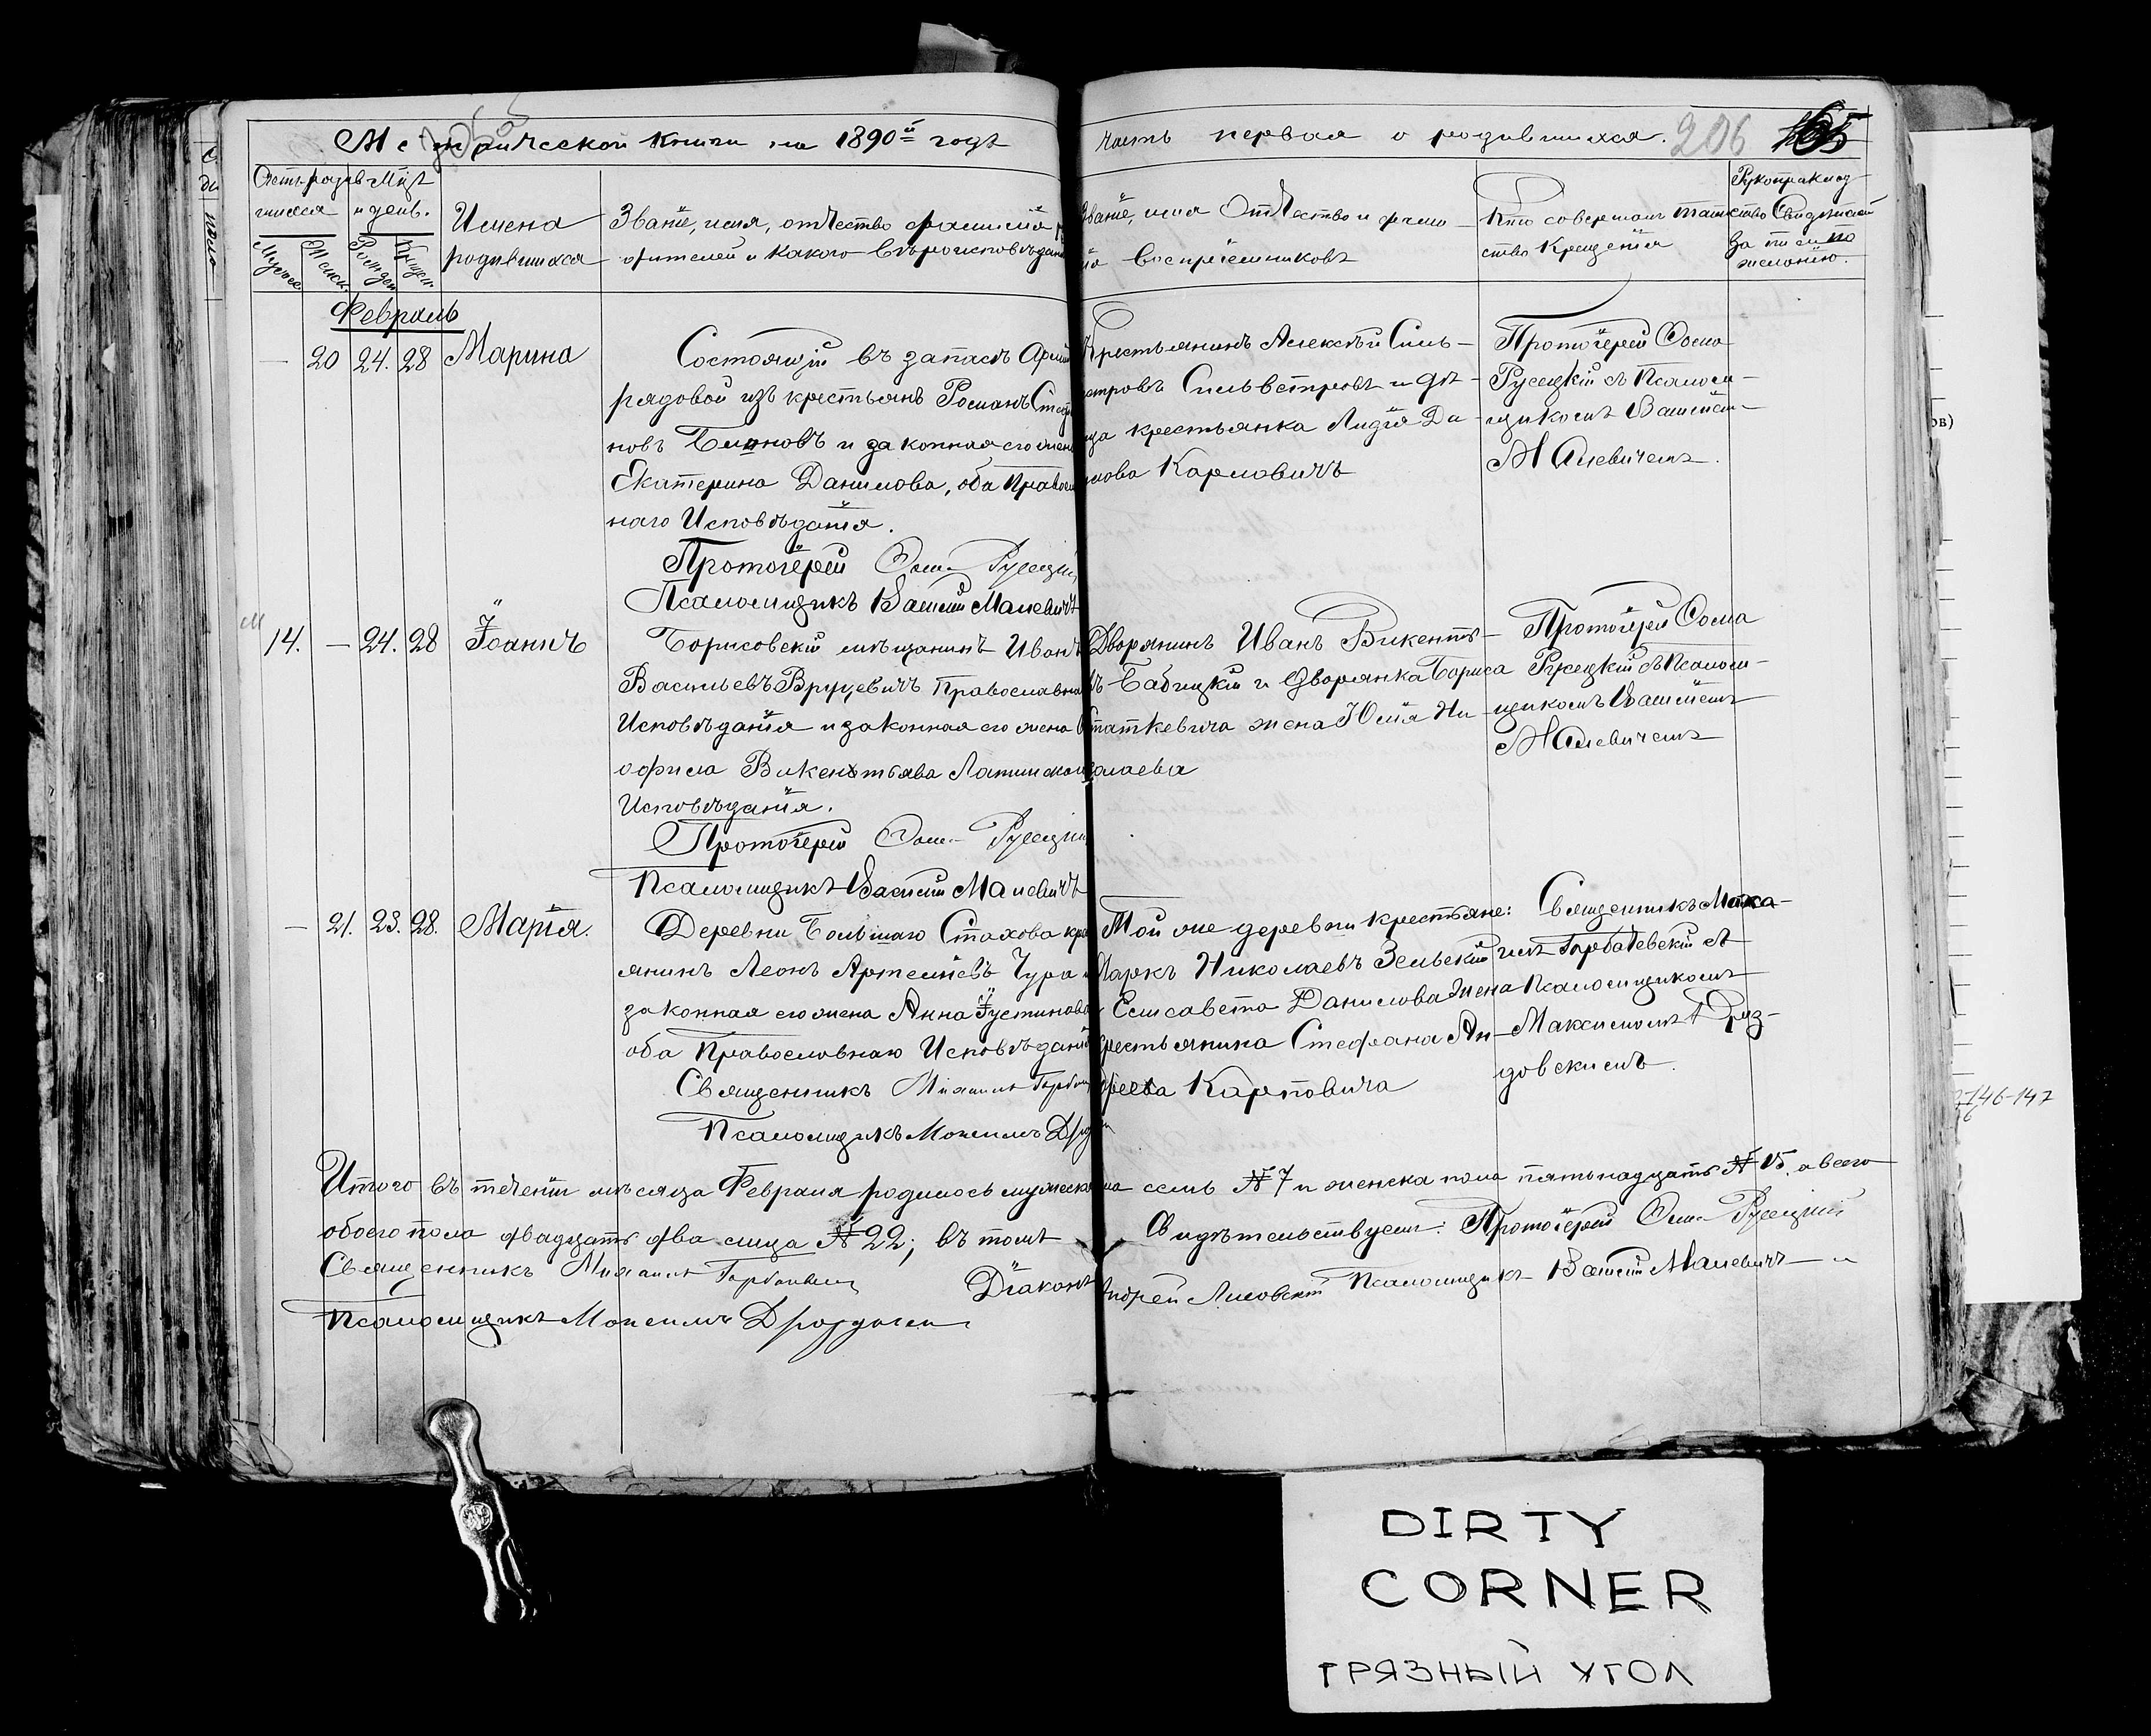 Метрической книги на 1890й годъ
часть первая о родившихся. 206
Счетъ родив-
шихся
Мцъ
и день.
Имена
родившихся
Званіе, имя, отчество фамилія
родителей и какого вѣроисповѣданія
Званіе, имя Отчество и фами-
лія воспріемниковъ
Кто совершалъ таин-
ство Крещенія
Рукоприклад
ство Свидѣтелей
записи по
желанію.
Женск. Рожден. Крещен.
Февраль
— 20 24. 28 Марина
Состоящій въ запасѣ Арміи
рядовой изъ крестьянъ Романъ
новъ Блиновъ и законная его жена
Екатерина Данилова, оба Православ
наго Исповѣданія.
Протоіерей Ѳома Русецкій
Псаломщикъ Василій Малевичъ
Крестьянинъ Алексѣй Силь-
вестровъ Сильвестровъ и дѣ-
вица крестьянка Лидія Да-
нилова Карловичъ
Протоіерей Ѳома
Русецкій съ Псалом-
щикомъ Василіем-
Малевичемъ.
14. — 24. 28 Іоаннъ
Борисовскій мѣщанинъ Иванъ
Васильевъ Вруцевичъ Православнаго
Исповѣданія и законная его жена
офила Викентьева Латинскаго
Исповѣданія.
Протоіерей Ѳома Русецкій
Псаломщикъ Василій Малевичъ
Дворянинъ Иванъ Викентье-
въ Бабицкій и дворянка Бориса
Статкевича жена Юлія Ни-
колаева
Протоіерей Ѳома
Русецкій съ Псалом-
щикомъ Василіемъ
Малевичемъ
— 21. 23. 28. Марія.
Деревни Большаго Стахова кресть
янинъ Леонъ Артеміевъ Чура и
законная его жена Анна Іустинова
оба Православнаго Исповѣданія
Священникъ Михаилъ Горбачевскій
Псаломщикъ Максимъ Дроздовскій
Той же деревни крестьяне:
Маркъ Николаевъ Зельскій
и Елисавета Данилова жена
крестьянина Стефана Ан-
дреева Карповича
Священникъ Миха-
илъ Горбачевскій съ
Псаломщикомъ
Максимомъ Дроз-
довскимъ.
Итого въ теченіи мѣсяца Февраля родилось мужеска пола семь № 7 и женска пола пятьнадцать № 15. а всего
обоего пола двадцать два лица № 22; въ томъ Свидѣтельствуемъ: Протоіерей Ѳома Русецкій
Священникъ Михаилъ Горбачевскій Діаконъ Андрей Лисовскій Псаломщикъ Василій Малевичъ и
Псаломщикъ Максимъ Дроздовскій
146-147
DIRTY
CORNER
ГРЯЗНЫЙ УГОЛ